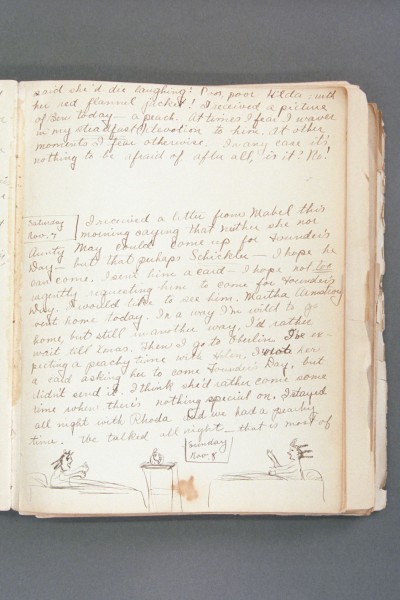 said she'd die laughing! Poor poor Hilda: with
her red flannel jacket! I received a picture
of Ben today — a peach. At times I fear I waver
in my steadfast devotion to him. At other
moments I fear otherwise. In any case it's
nothing to be afraid of after all, is it? No!
Saturday
Nov. 7
I received a letter from Mabel this
morning saying that neither she nor
Aunty May could come up for Founder's
Day — but that perhaps Schickler — I hope he
can come. I sent him a card — I hope not too
urgently, requesting him to come for Founder's
Day. I would like to see him. Martha Armstrong
went home today. In a way I'm wild to go
home, but still in another way, I'd rather
wait till Xmas. Then I go to Oberlin. I'm ex-
pecting a peachy time with Helen. I wrote her
a card asking her to come Founder's Day, but
didn't send it. I think she'd rather come some
time when there's nothing special on. I stayed
all night with Rhoda and we had a peachy
time. We talked all night — that is most of
Sunday
Nov. 8